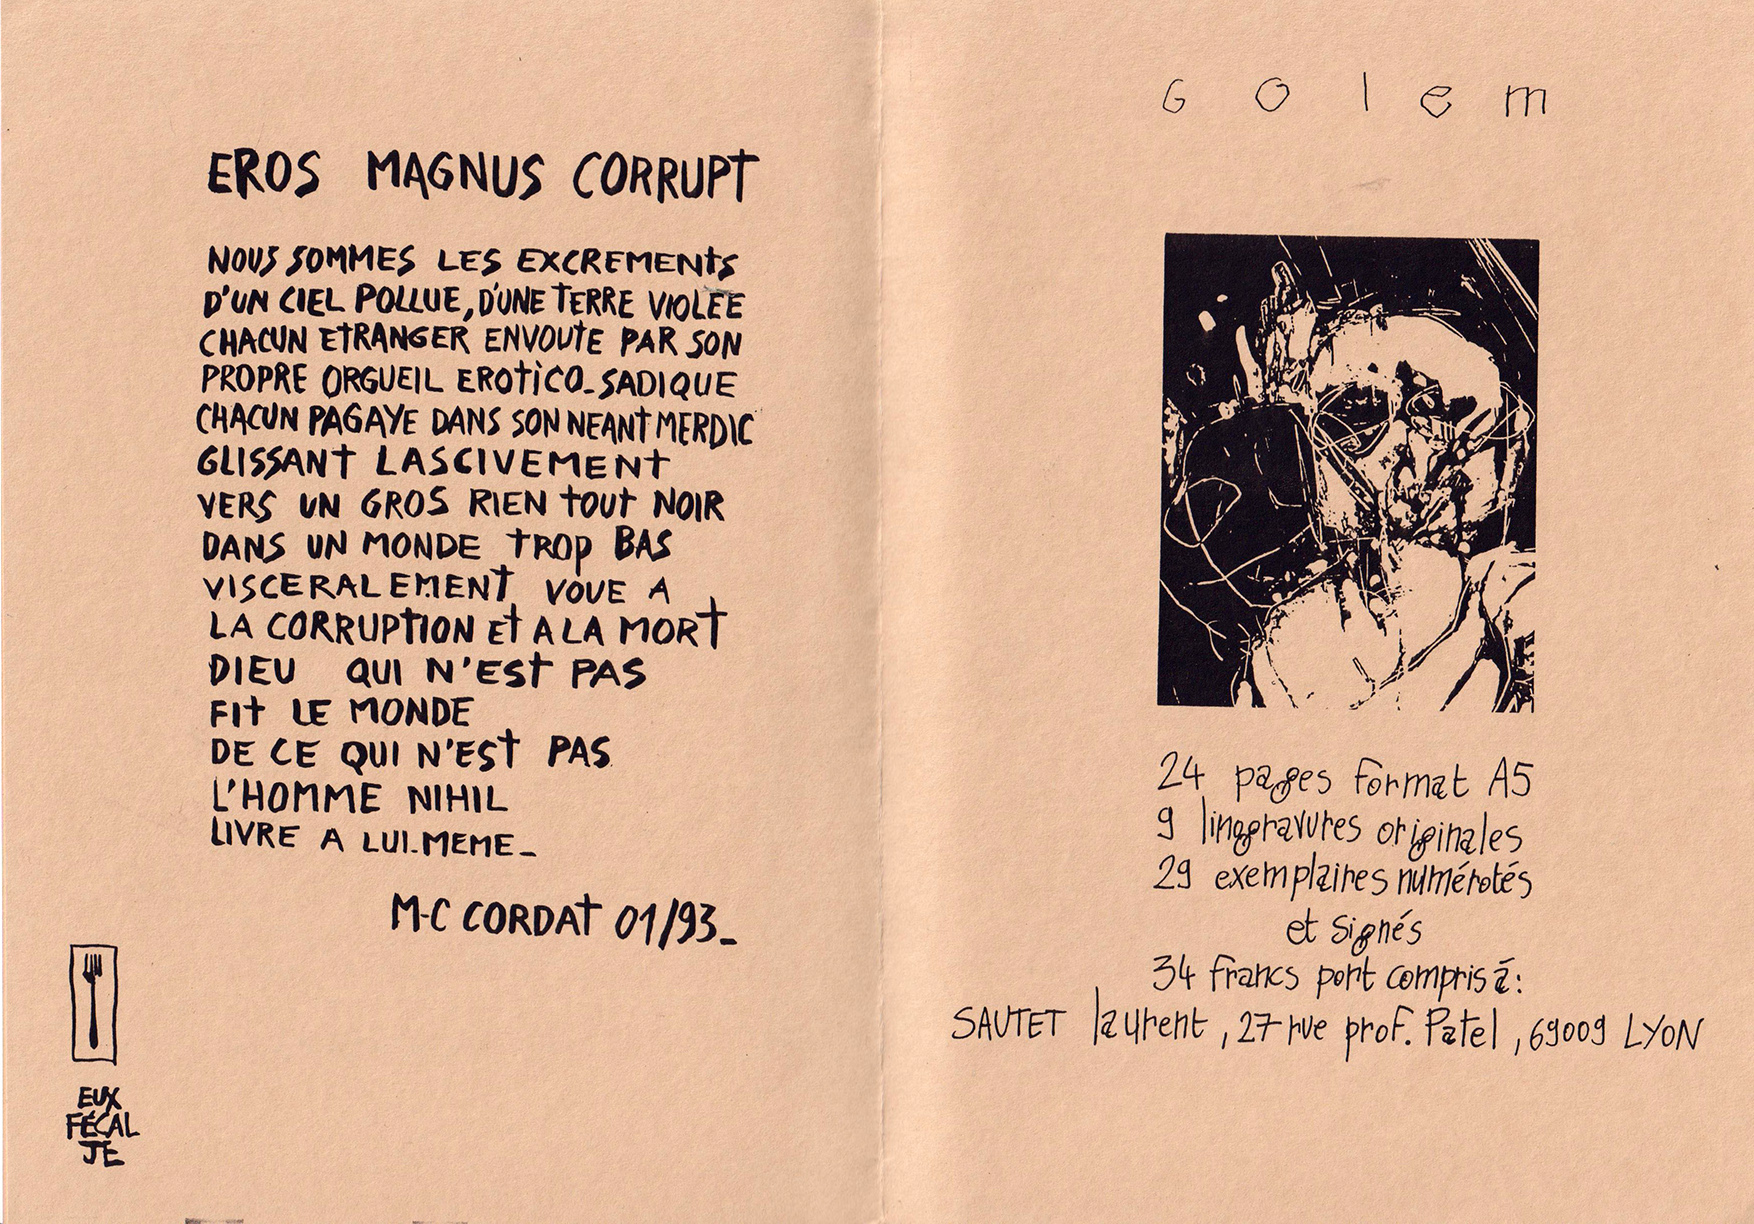 EROS MAGNUS CORRUPT
NOUS SOMMES LES EXCREMENTS
D'UN CIEL POLLUE, D'UNE TERRE VIOLEE
CHACUN ETRANGER ENVOUTE PAR SON
PROPRE ORGUEIL EROTICO_SADIQUE
CHACUN PAGAYE DANS SON NEANT MERDIC
GLISSANT LASCIVEMENT
VERS UN GROS RIEN TOUT NOIR
DANS UN MONDE TROP BAS
VISCERALEMENT VOUE A
LA CORRUPTION ET A LA MORT
DIEU QUI N'EST PAS
FIT LE MONDE
DE CE QUI N'EST PAS
L'HOMME NIHIL
LIVRE A LUI-MEME_
M-C CORDAT 01/93_
EUX
FÉCAL
JE
Golem
24 pages format A5
9 linogravures originales
29 exemplaires numérotés
et signés
34 francs port compris à :
SAUTET laurent, 27 rue prof. Patel, 69009 LYON